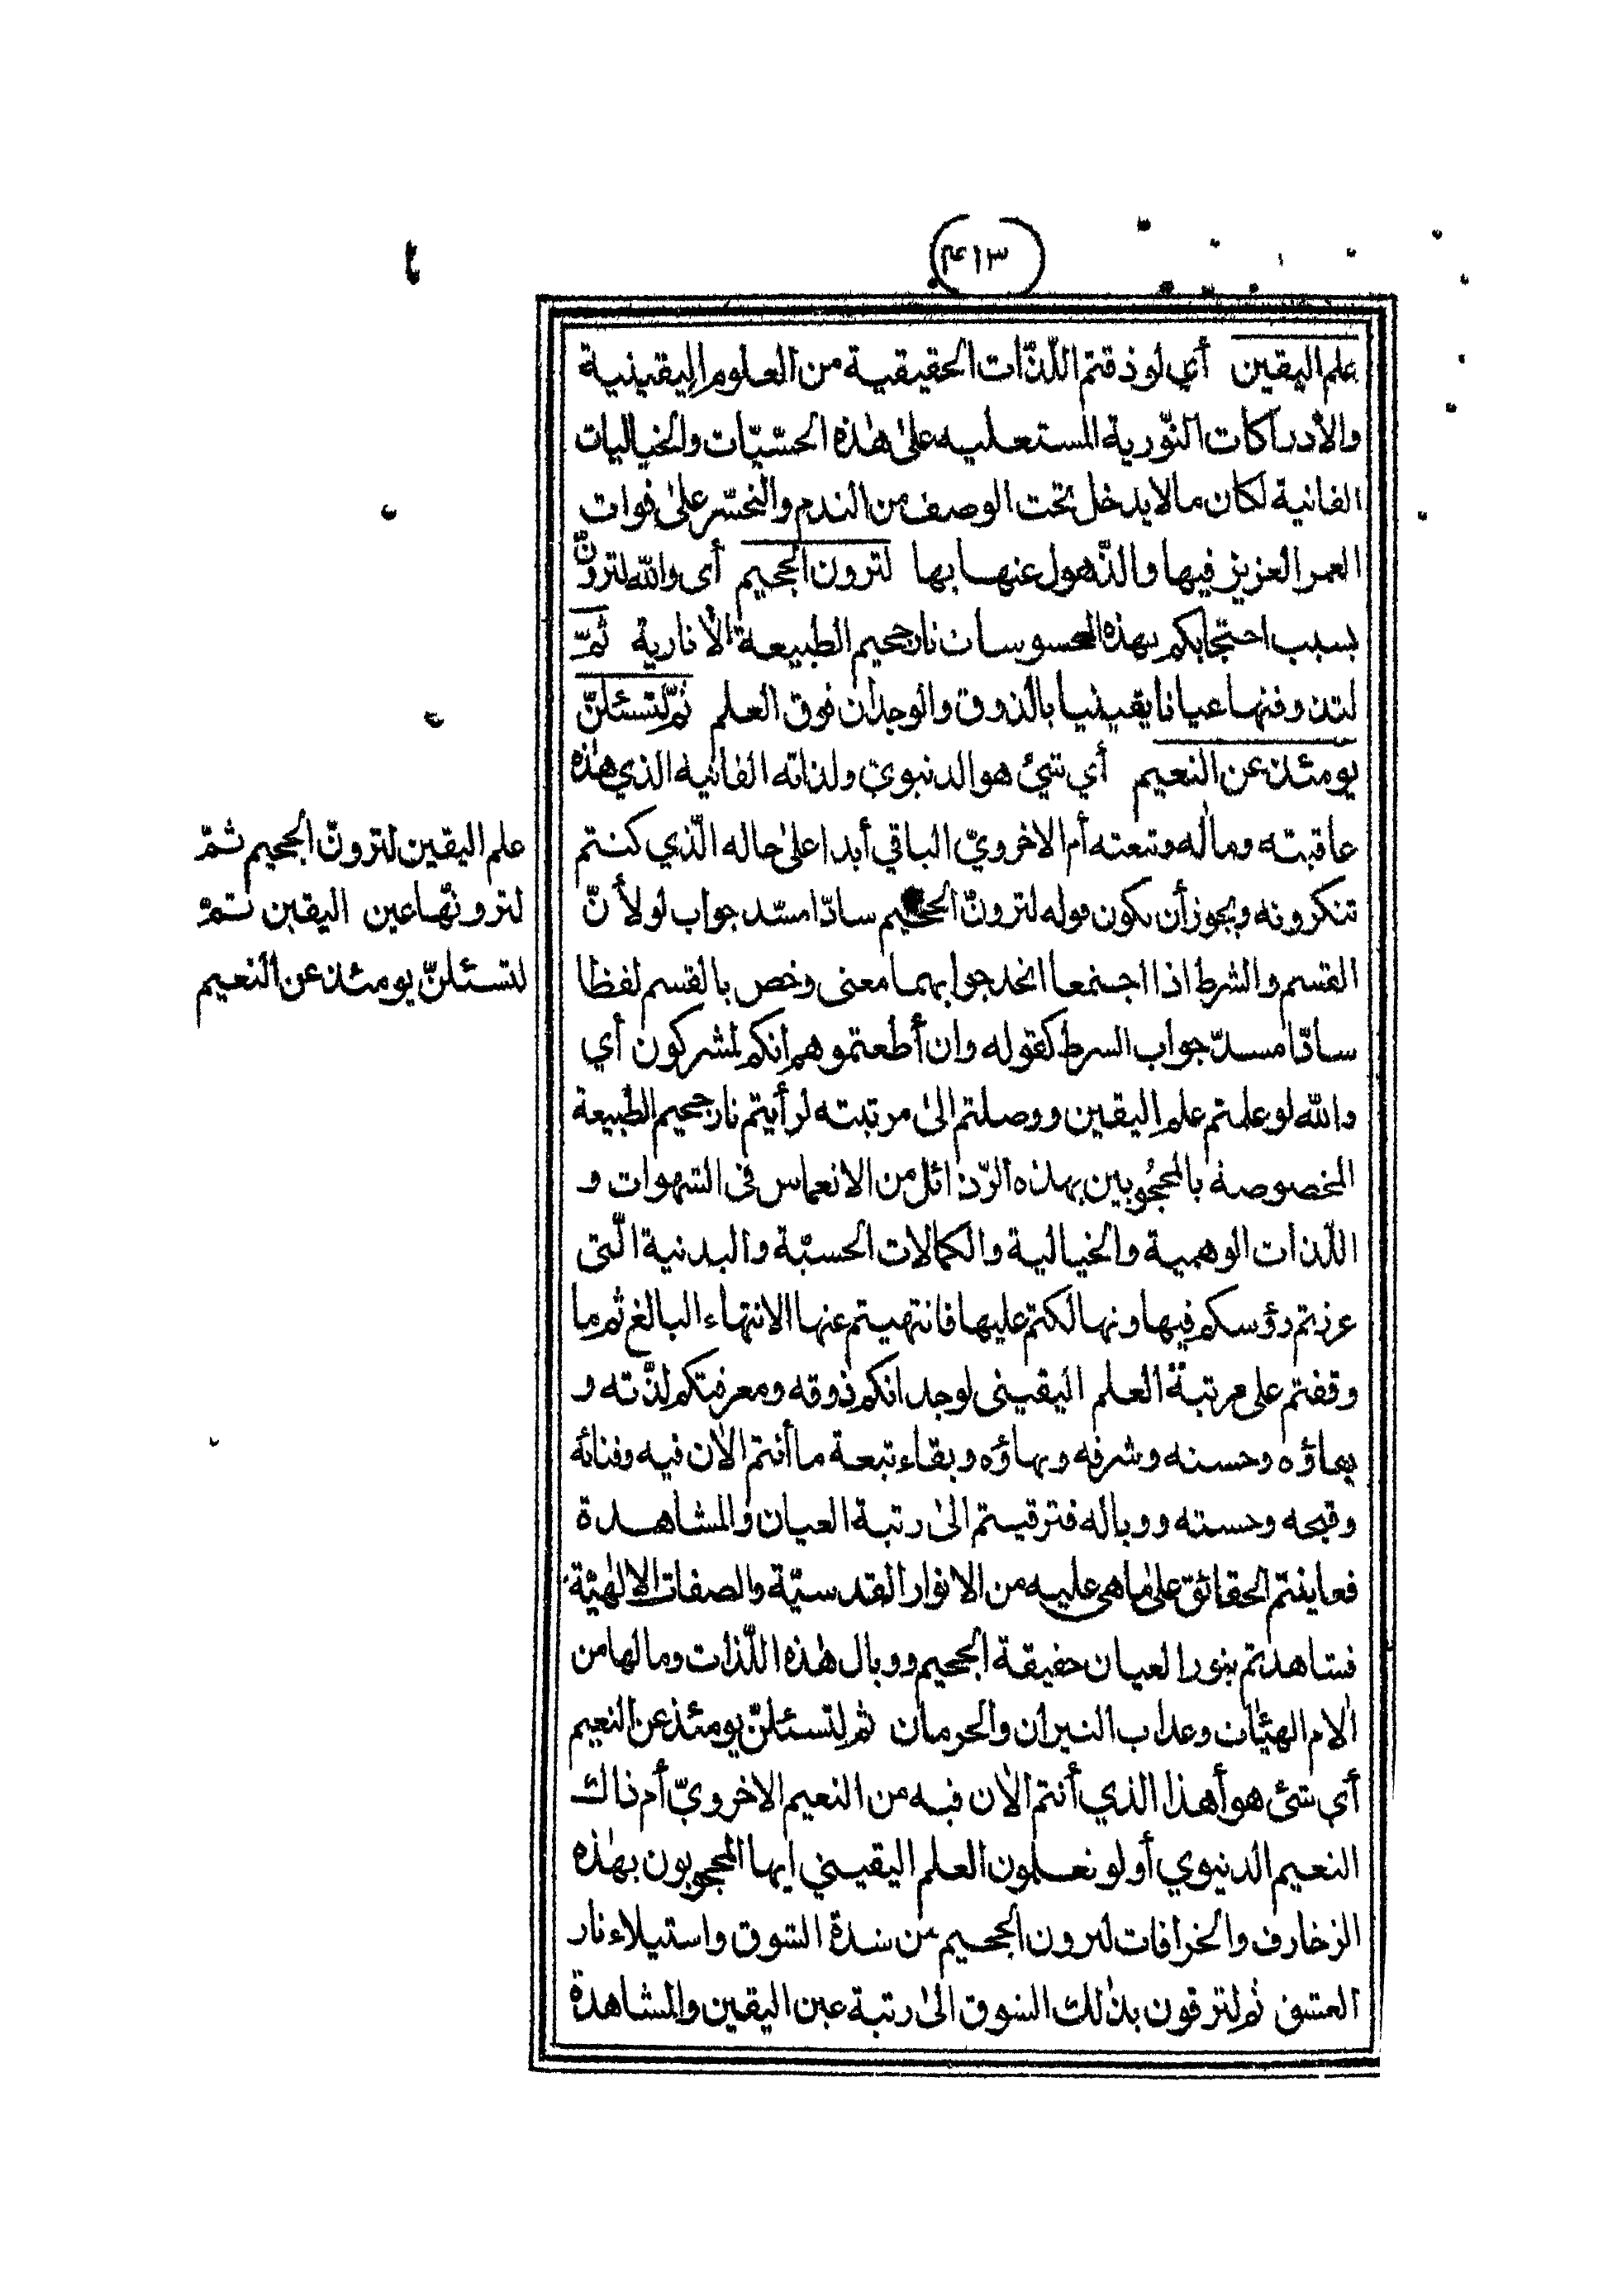 ٤١٣
علم اليقين أي لو ذقتم اللّذّات الحقيقية من العلوم اليقينية
والأدراكات النّورية المستعليه على هٰذه الحسّيّات والخياليات
الفانية لكان مالا يدخل تحت الوصف من الندم والتحسّر على فوات
العمر العزيز فيها والذّهول عنها بها لترون الجحيم أى والله لترونّ
بسبب احتجابكم بهذه المحسوسات نار جحيم الطبيعة الأنارية ثمّ
لتذوقنها عيانا يقينيا بالذوق والوجدان فوق العلم ثمّ لتسئلنّ
يومئذ عن النعيم أي شيئ هو الدنيوي ولذاته الفانيه الذي هٰذه
عاقبته وماله وتبعته أم الاخرويّ الباقي أبدا على حاله الّذي كنتم
تنكرونه ويجوز أن يكون قوله لترونّ الجحيم سادّا مسّد جواب لو لأنّ
القسم والشرط اذا اجتمعا اتحد جوابهما معنى وخص بالقسم لفظا
سادّا مسدّ جواب الشرط كقوله وان أطعتموهم انكم لمشركون أي
والله لو علمتم علم اليقين ووصلتم الى مرتبته لرأيتم نار جحيم الطبيعة
المخصوصة بالمحجُوبين بهذه الرّذائل من الانغماس فى الشهوات و
اللذات الوهمية والخيالية والكمالات الحسيّة والبدنية الّتى
عززتم رؤسكم فيها ونهالكتم عليها فانتهيتم عنها الانتهاء البالغ ثم ما
وقفتم على مرتبة العلم اليقينى لوجدانكم ذوقه ومعرفتكم لذّته و
بهاؤه وحسنه وشرفه وبهاؤه وبقاء تبعة ما أنتم الاٰن فيه وفنائه
وقبحه وحسته ووباله فترقيتم الىٰ رتبة العيان والمشاهدة
فعاينتم الحقائق علىٰ ماهى عليه من الانوار القدسيّة والصفات الإلٰهيّة
فشاهدتم بنور العيان حقيقة الجحيم ووبال هٰذه اللّذات ومالها من
اٰلام الهيٰات وعذاب النيران والحرمان ثم لتسئلنّ يومئذ عن النعيم
أي شئ هو أهذا الذي أنتم الاٰن فيه من النعيم الاخرويّ أم ذاك
النعيم الدنيوي أو لو تعلمون العلم اليقيني ايها المحجوبون بهٰذه
الزخارف والخرافات لترون الجحيم من شدة الشوق واستيلاء نار
العشق ثم لترقون بذٰلك الشوق الىٰ رتبة عين اليقين والمشاهدة
علم اليقين لترونّ الجحيم ثمّ
لترونّها عين اليقين ثمّ
لتسئلنّ يومئذ عن النعيم